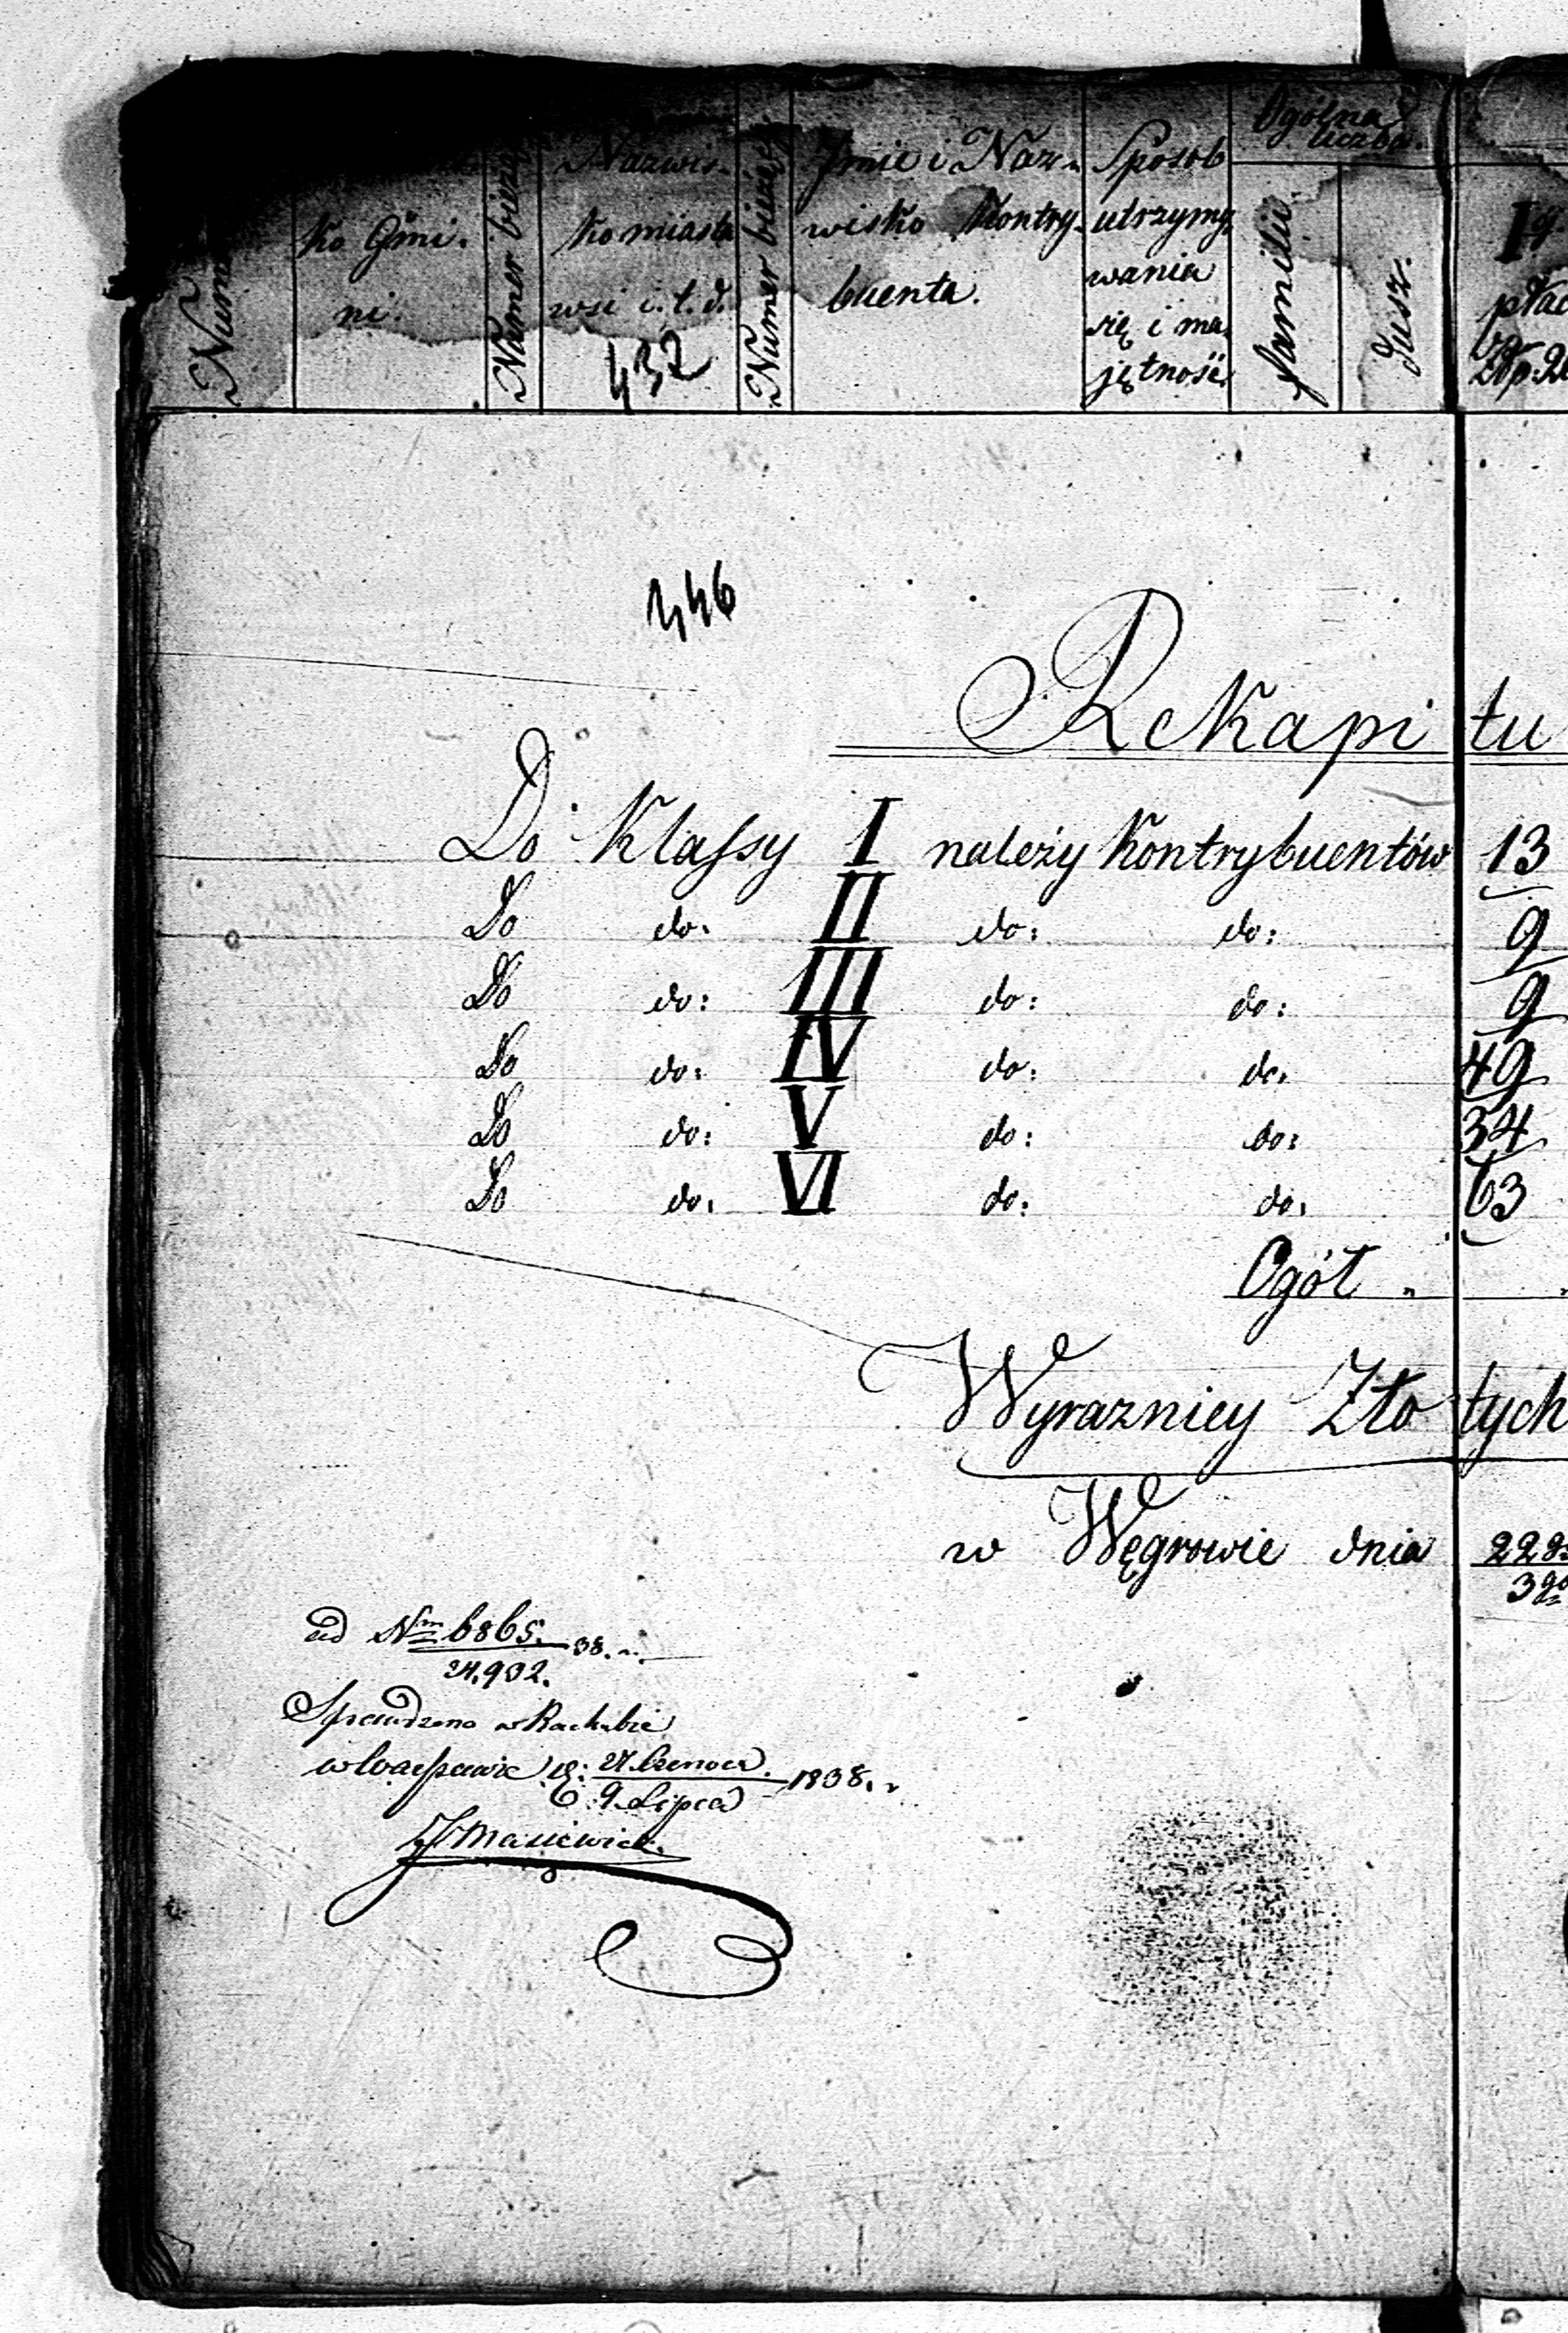 Numer
ko Gmi.
ni.
Numer bieżą
Nazwis.
ko miasta
wsi i.t.d.
432
Numer bieżący
Imie i Naz-
wisko Kontry-
buenta.
Sposob
utrzymy-
wania
się i ma-
jętność.
Ogólna
liczba.
familii.
Dusz.
I
płac
Złp.
446
Rekapitu
Do Klassy I należy Kontrybuentów 13
Do do: II do: do: 9
Do do: III do: do: 9
Do do: IV do: do: 49
Do do: V do: do: 34
Do do: VI do: do: 63
Ogół
Wyrazniey Złotych
w Węgrowie dnia 22
3
ad Nrm 6865. 38.
24,932.
Sprawdzono w Rachubie
w Warszawie d: 27 Czerwca 1838.
9 Lipca